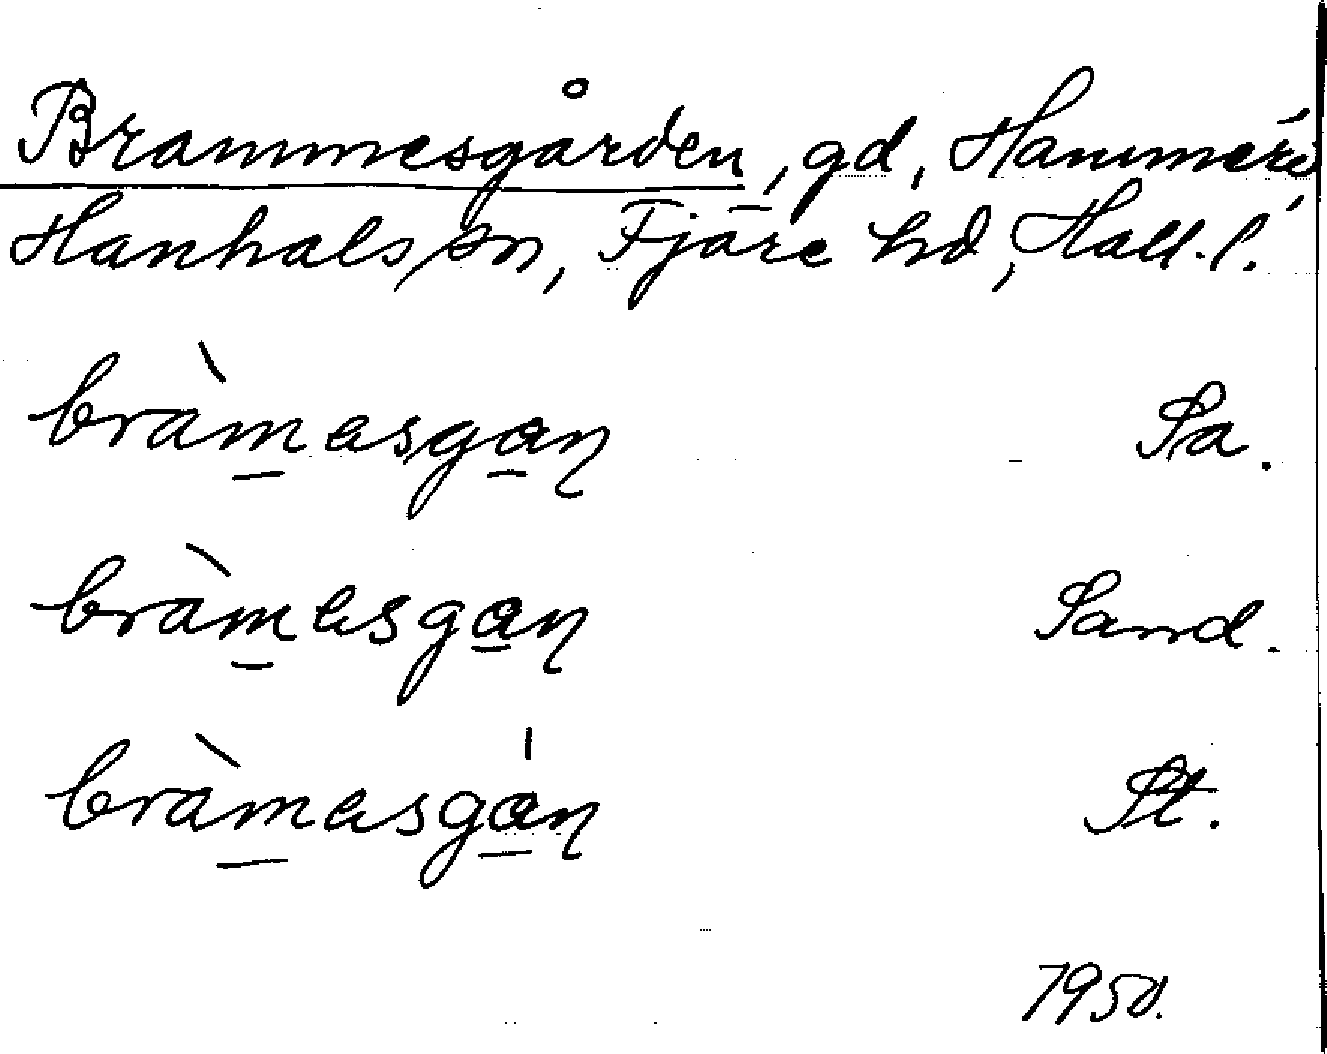 Brammesgården, gd, Hammerö
Hanhals sn, Fjäre hd, Hall. l.
bràmasgan̥ Sa.
bràmasgan̥ Sand.
bràmasgán̥ St.
1950.